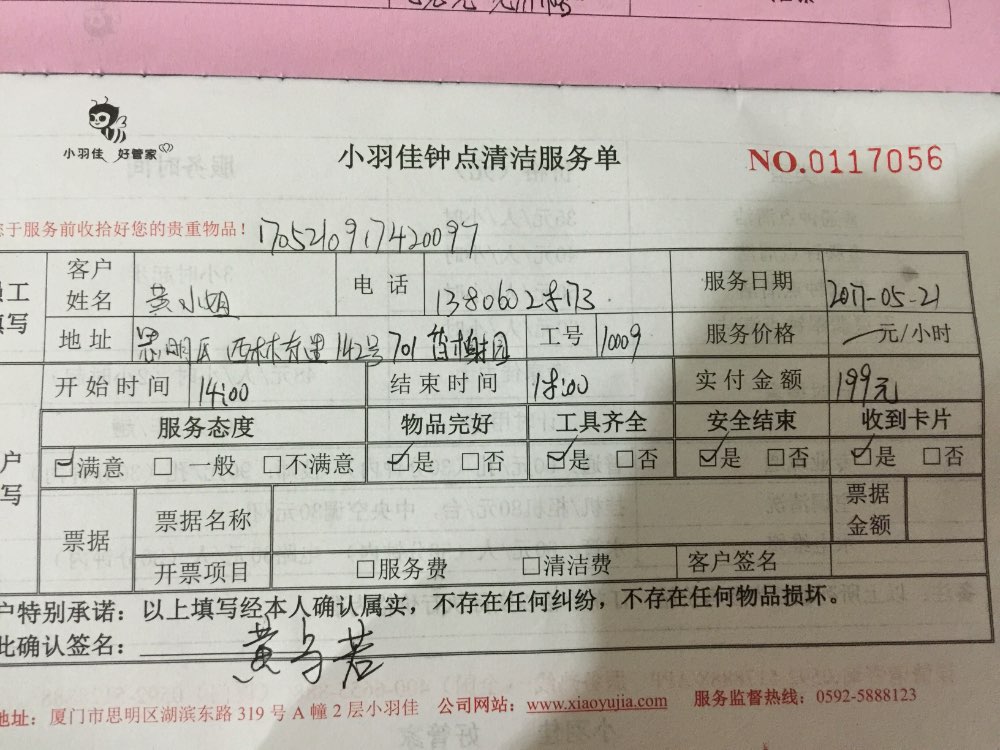 小羽佳 好管家
小羽佳钟点清洁服务单
NO.0117056
于服务前收拾好您的贵重物品！ 1705210917420097
员工填写
客户姓名 黄小姐 电话 服务日期 2017-05-21
地址 思明区西林东里142号701 工号 10009 服务价格 元/小时
开始时间 14:00 结束时间 18:00 实付金额 199元
服务态度 物品完好 工具齐全 安全结束 收到卡片
户写
☑满意 □一般 □不满意 ☑是 □否 ☑是 □否 ☑是 □否 ☑是 □否
票据 票据名称 票据金额
开票项目 □服务费 □清洁费 客户签名
户特别承诺：以上填写经本人确认属实，不存在任何纠纷，不存在任何物品损坏。
此确认签名：
地址：厦门市思明区湖滨东路 319 号 A 幢 2 层小羽佳 公司网站：www.xiaoyujia.com 服务监督热线：0592-5888123